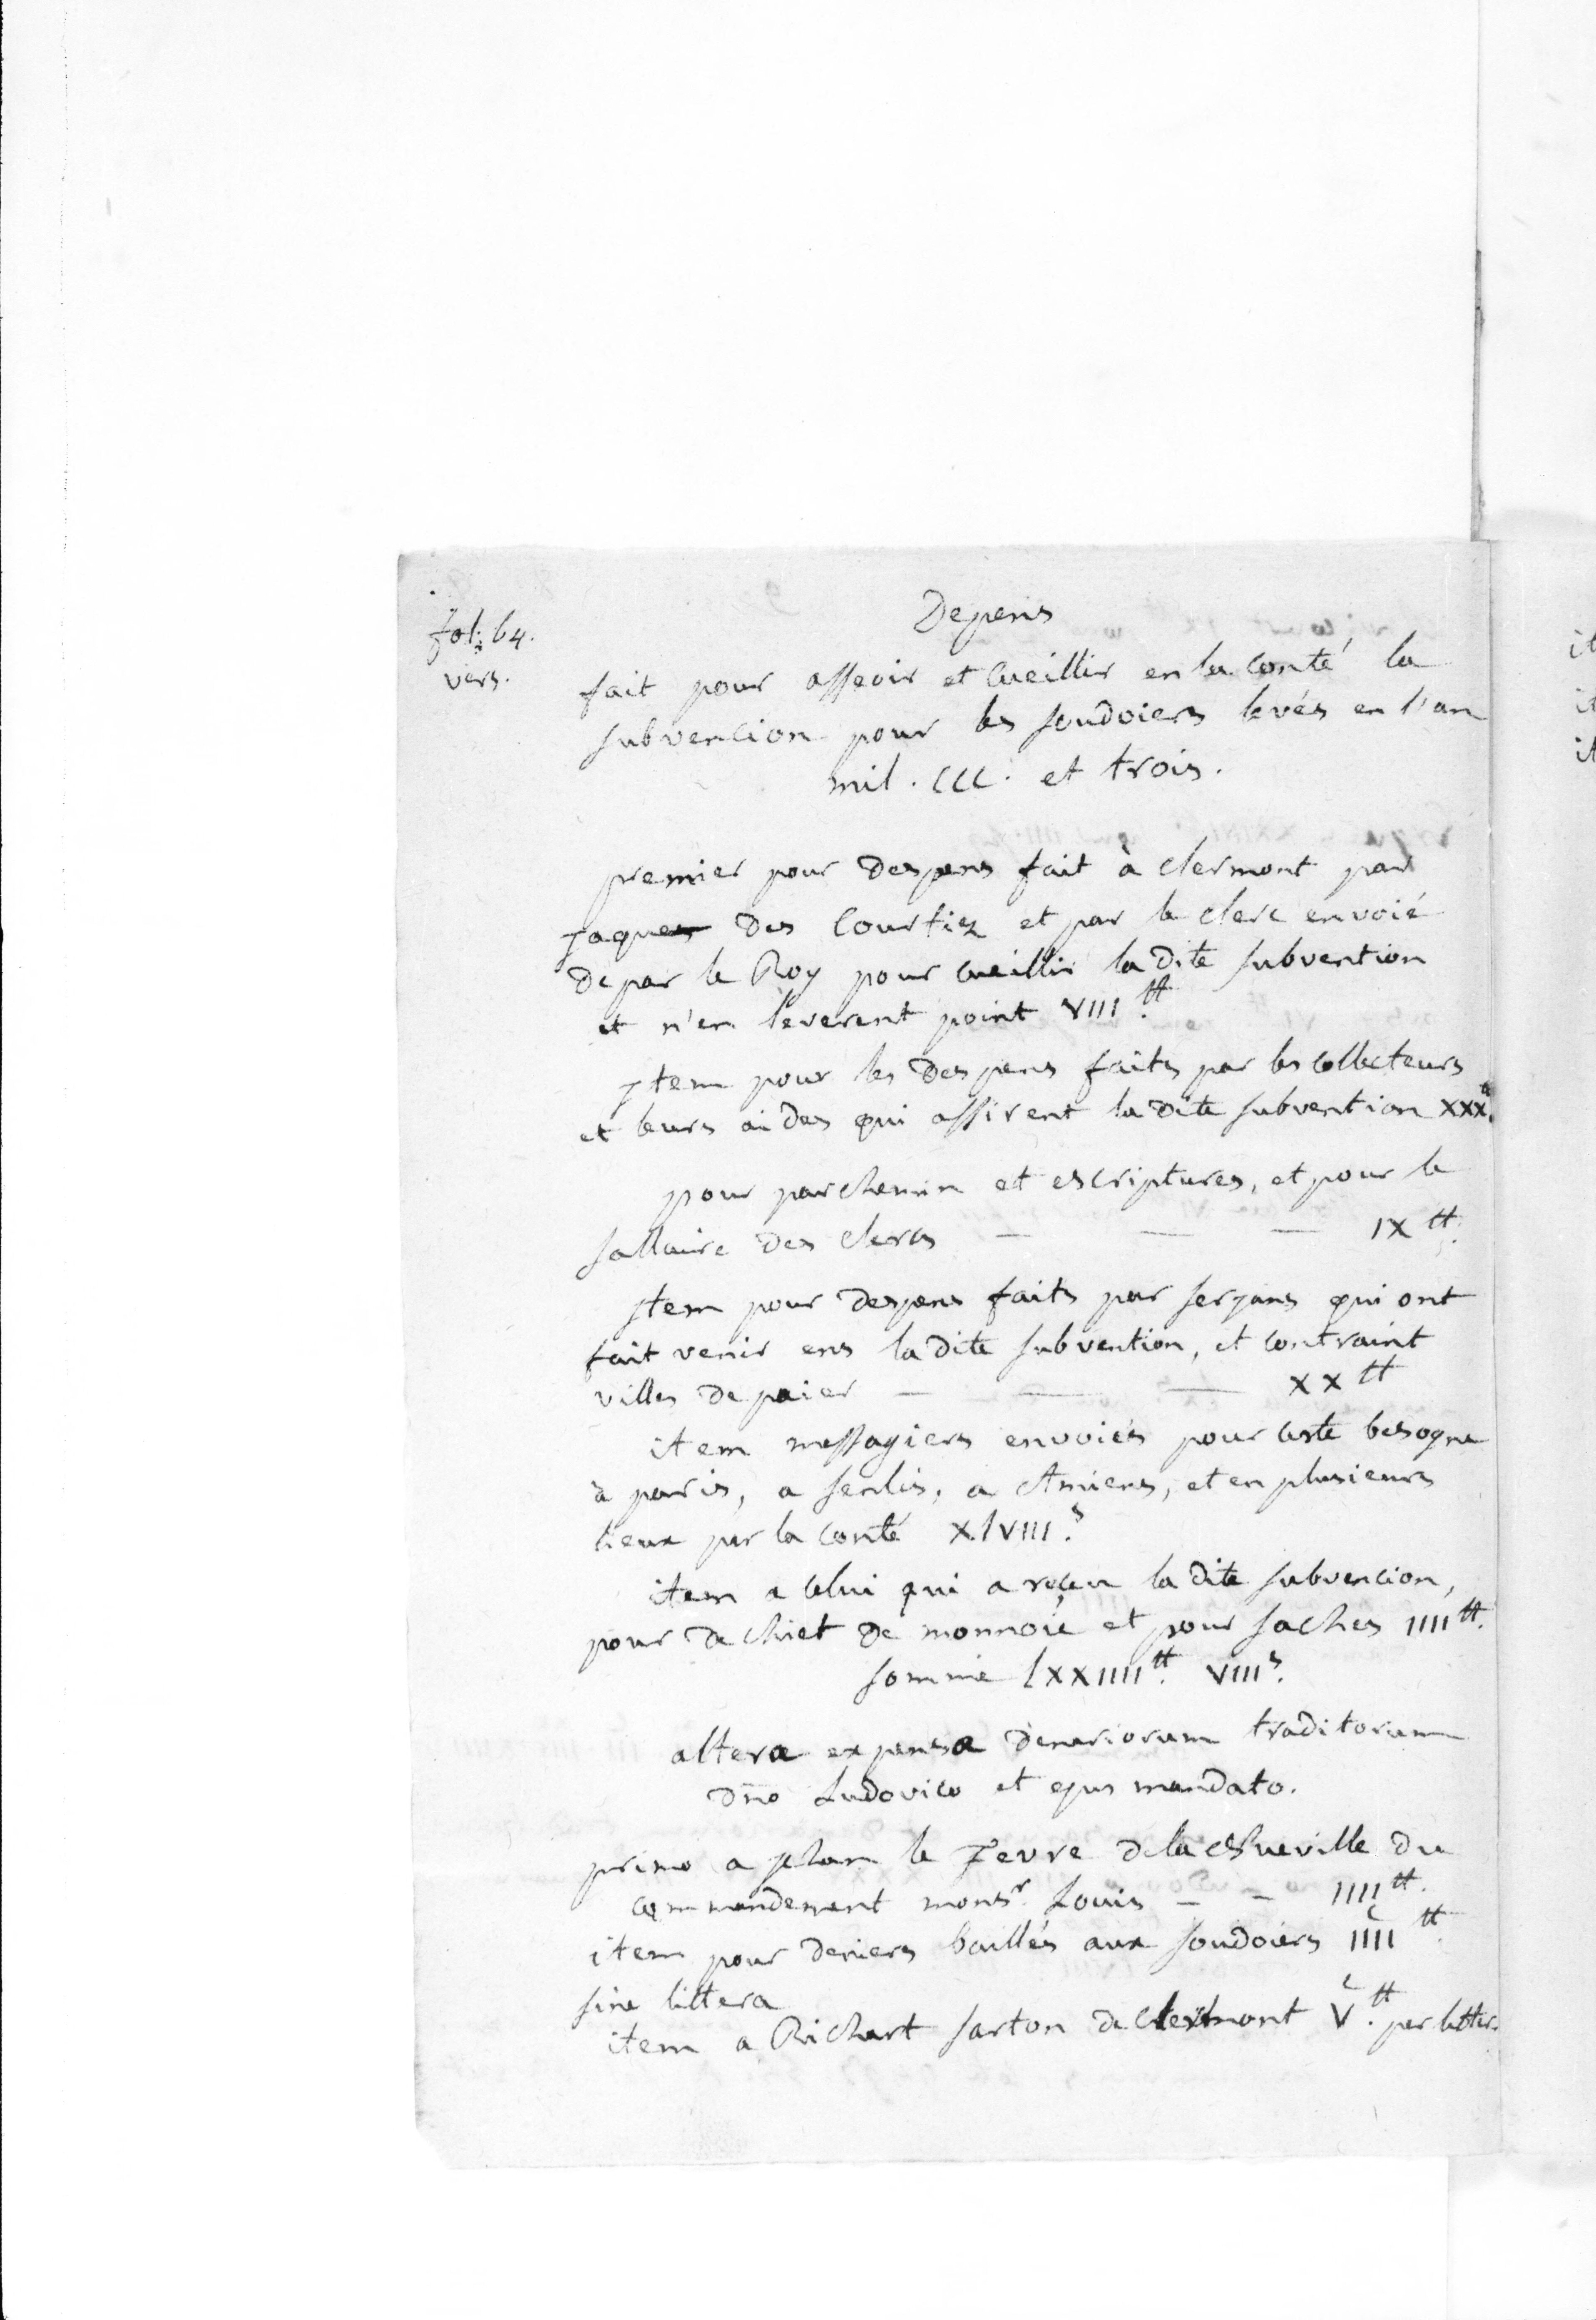 Depens
fol. 64.
vers.
fait pour asseoir et cueillir en la conté la
subvencion pour les soudoiers levés en l'an
mil. CCC. et trois.
premier pour despens fait à clermont par
Jaques des Courtiz et par le clerc envoié
de par le Roy pour cueillir la dite subvention
et n'en leverent point VIII tt.
Item pour les despens faits par les collecteurs
et leurs aides qui assirent la dite subvention XXX tt.
pour parchemin et escriptures, et pour le
sallaire des clercs — — — IX tt.
Item pour despens faits par serjans qui ont
fait venir ens la dite subvention, et contraint
villes de paier — — — XX tt
item messagiers envoiés pour ceste besogne
à paris, a senlis, a Amiens, et en plusieurs
lieux par la conté XLVIII s.
item a celui qui a reçeu la dite subvencion,
pour dechiet de monnoie et pour saches IIII tt.
somme LXXIIII tt. VIII s.
altera expensa denariorum traditorum
dño Ludovico et ejus mandato.
primo a jehan le fevre de la Nueville du
commandement mons.r Louis — — IIII tt.
item pour deniers baillés aux soudoiers IIII c tt.
sine littera
item a Richart sarton de clermont V c tt. per litter.
it
it
it